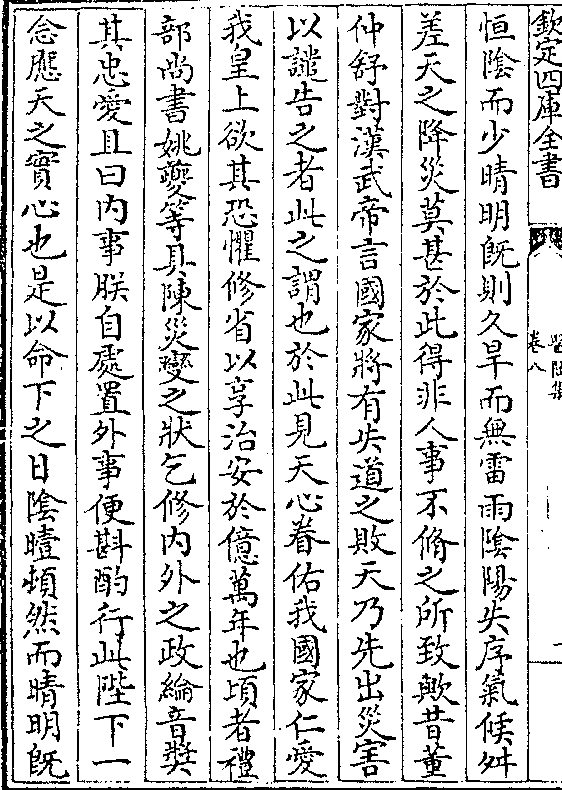 欽定四庫全書
卷八
恒陰而少晴明旣則久旱而無雷雨陰陽失序氣候舛
差天之降災莫甚於此得非人事不脩之所致歟昔董
仲舒對漢武帝言國家將有失道之敗天乃先出災害
以譴告之者此之謂也於此見天心眷佑我國家仁愛
我皇上欲其恐懼修省以享治安於億萬年也頃者禮
部尚書姚夔等具陳災變之狀乞修内外之政綸音奬
其忠愛且曰内事朕自處置外事便斟酌行此陛下一
念應天之實心也是以命下之日陰曀頓然而晴明旣